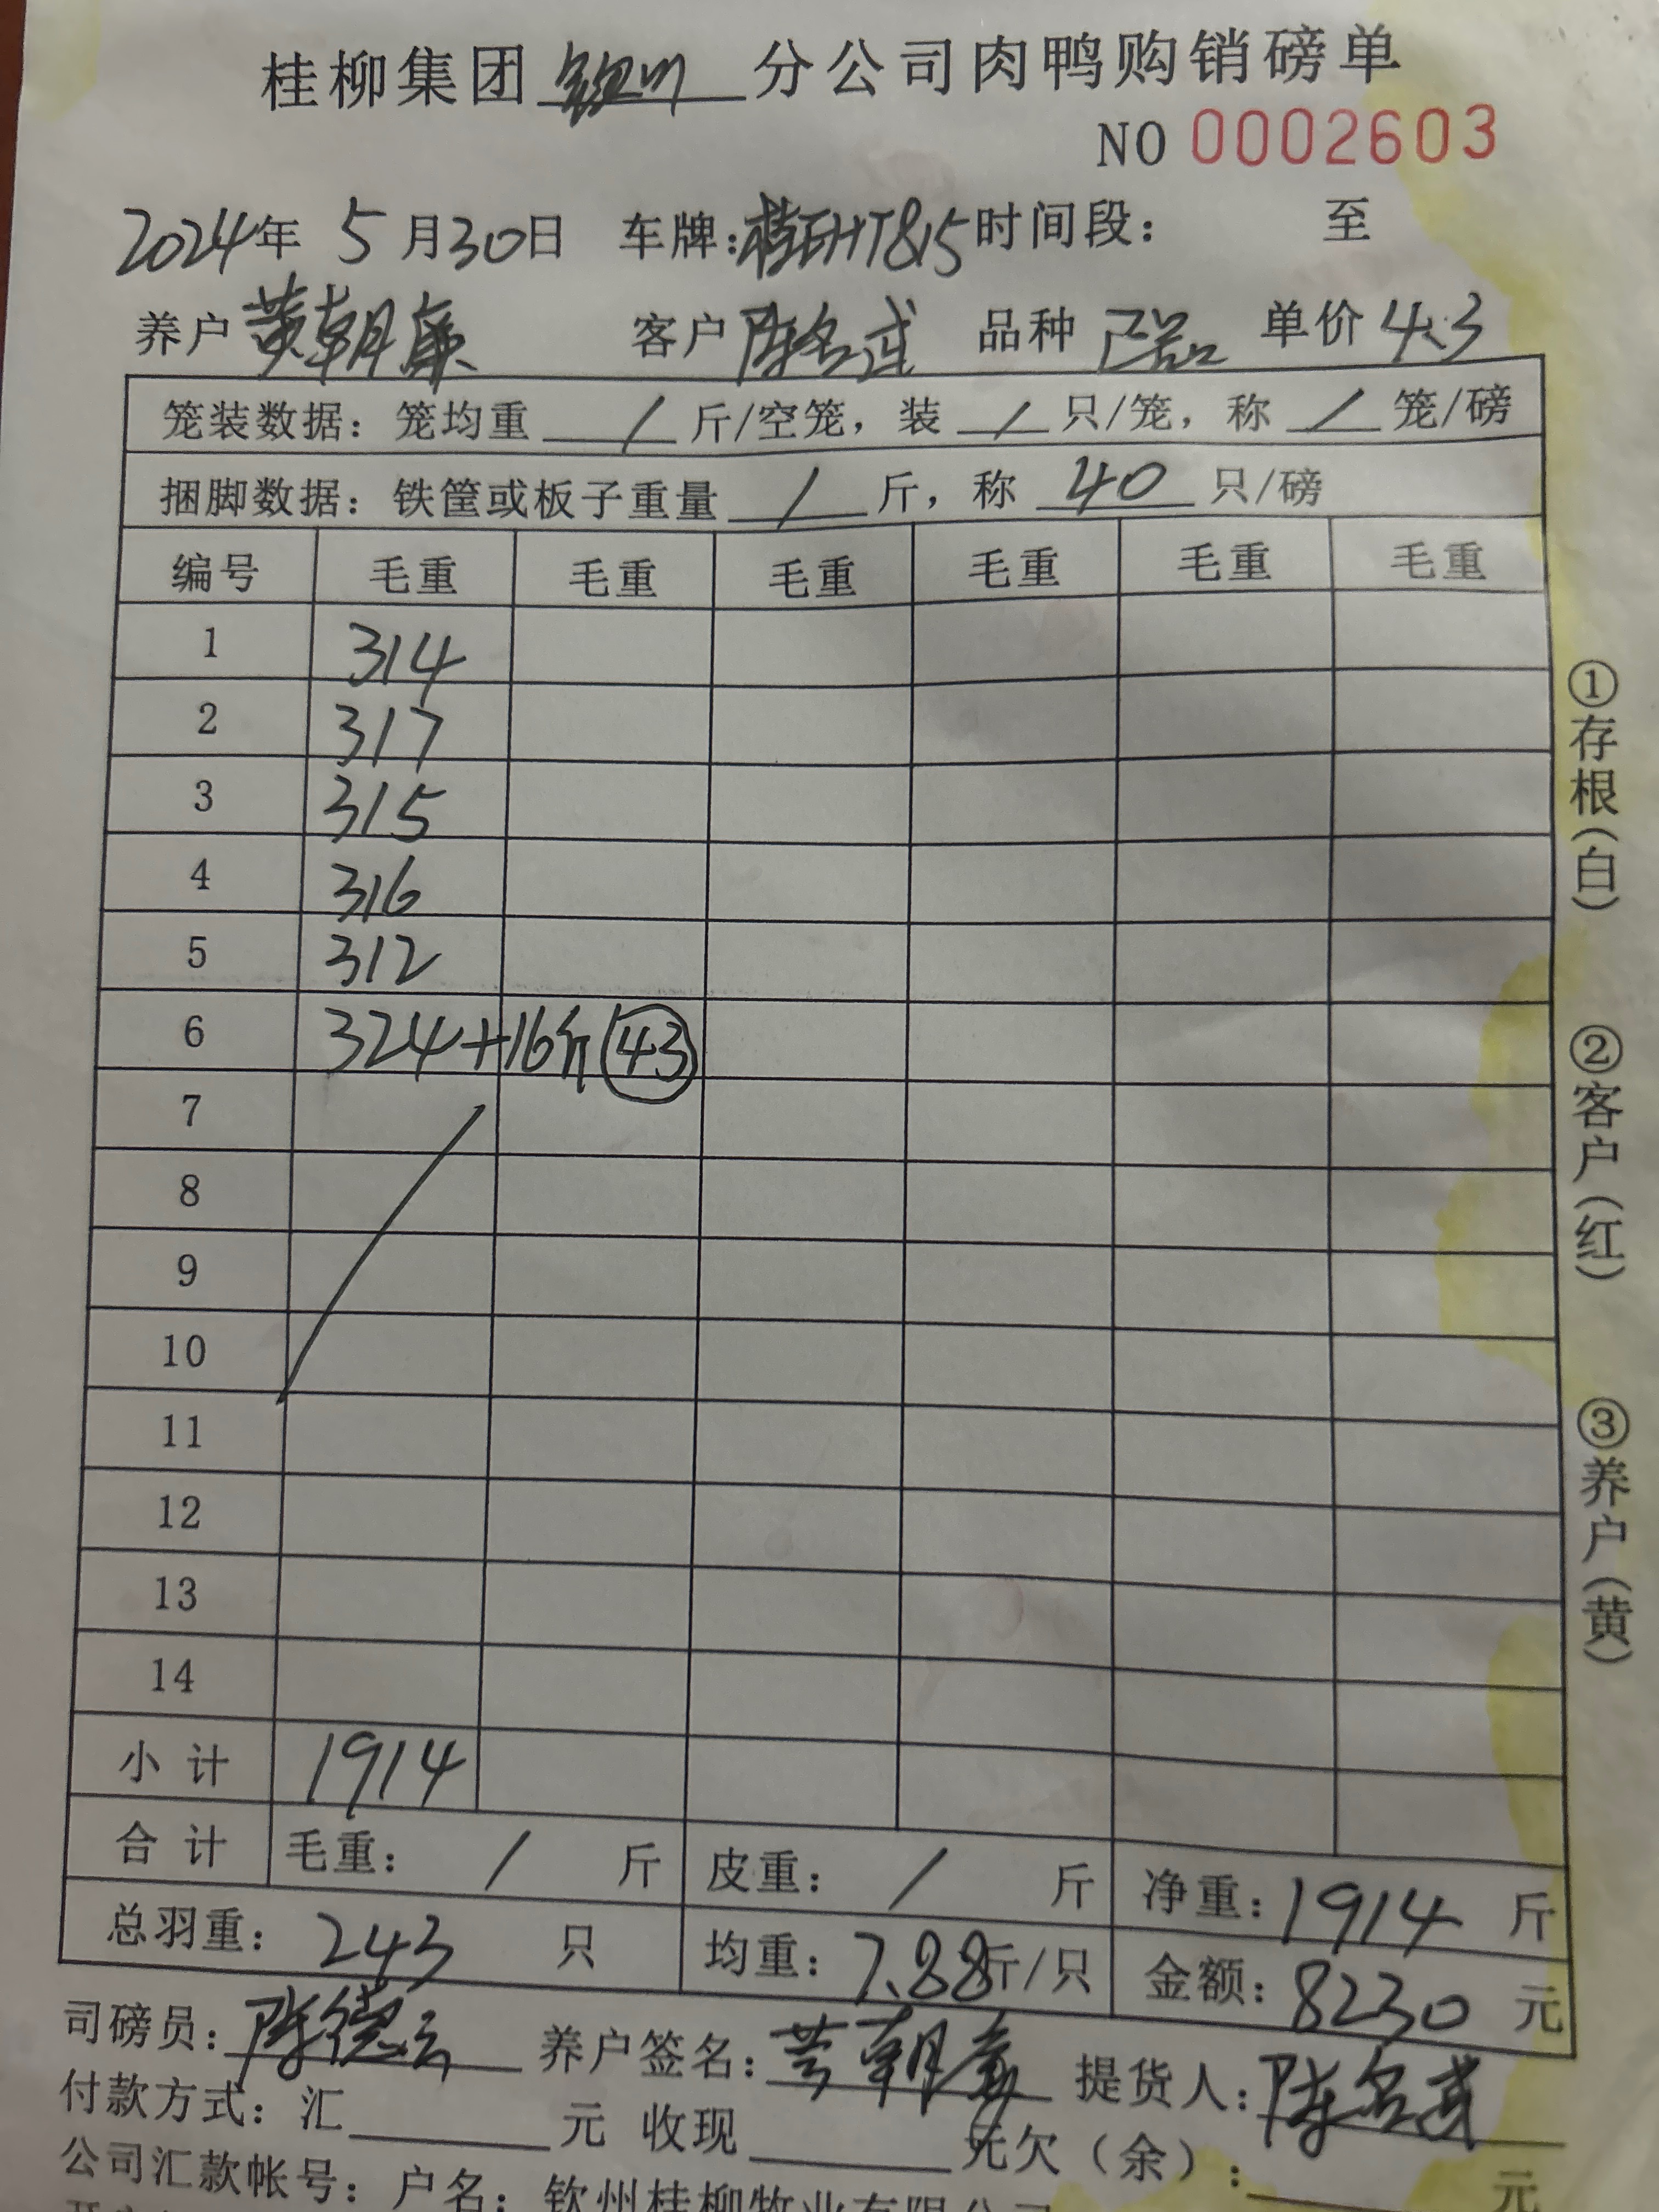 桂柳集团 钦州 分公司肉鸭购销磅单
NO 0002603
2024年 5月30日 车牌:桂EHT815时间段: 至
养户 黄朝廉 客户 陈名武 品种 单价 4.3
笼装数据: 笼均重 / 斤/空笼, 装 / 只/笼, 称 / 笼/磅
捆脚数据: 铁筐或板子重量 / 斤, 称 40 只/磅
编号 毛重 毛重 毛重 毛重 毛重 毛重
1 314
2 317
3 315
4 316
5 312
6 324+16斤 43
7
8
9
10
11
12
13
14
小计 1914
合计 毛重: / 斤 皮重: / 斤 净重: 1914 斤
总羽重: 243 只 均重: 7.88斤/只 金额: 8230 元
司磅员: 陈德云 养户签名: 黄朝廉 提货人: 陈名武
付款方式: 汇 元 收现 元欠(余): 元
公司汇款帐号: 户名: 钦州桂柳牧业有限公司
①存根(白)
②客户(红)
③养户(黄)